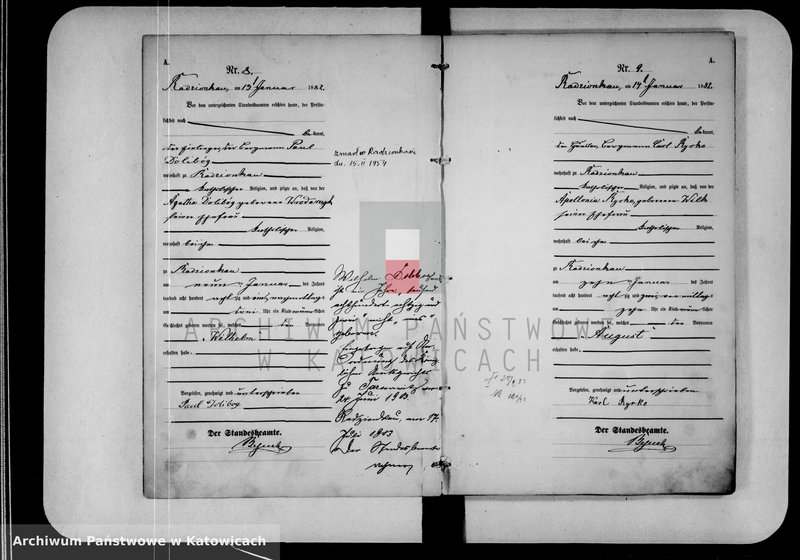 A.
Nr. 8.
Radzionkau, am 13 Januar 1882.
Vor dem unterzeichneten Standesbeamten erschien heute, der Persön-
lichkeit nach
bekannt,
der Bergmann Paul
Dolibóg
wohnhaft zu Radzionkau
katholischer Religion, und zeigte an, daß von der
Agatha Dolibóg geborene Wrodarczyk
seiner Ehefrau
katholischer Religion,
wohnhaft bei ihm
zu Radzionkau
am neun Januar des Jahres
tausend acht hundert achtzig und zwei nachmittags
um drei Uhr ein Kind männlichen
Geschlechts geboren worden sei, welches den Vornamen
Wilhelm
erhalten habe.
Vorgelesen, genehmigt und unterschrieben
Paul Dolibog
Der Standesbeamte.
zmarł w Radzionkau
dn. 15. II 1954
Wilhelm Dolibog
ist im Jahre tausend
achthundert achtzig und
zwei nicht
geboren.
Eingetragen auf An-
ordnung des König-
lichen Amtsgerichts
zu Tarnowitz vom
1903.
Radzionkau, am 17.
Juli 1903
Der Standesbeamte
A.
Nr. 9.
Radzionkau, am 14 Januar 1882.
Vor dem unterzeichneten Standesbeamten erschien heute, der Persön-
lichkeit nach
bekannt,
der Häusler, Bergmann Carl Kyrko
wohnhaft zu Radzionkau
katholischer Religion, und zeigte an, daß von der
Apollonia Kyrko, geborene Wilk
seiner Ehefrau
katholischer Religion,
wohnhaft bei ihm
zu Radzionkau
am zehn Januar des Jahres
tausend acht hundert achtzig und zwei vormittags
um zehn Uhr ein Kind männlichen
Geschlechts geboren worden sei, welches den Vornamen
August
erhalten habe.
Vorgelesen, genehmigt und unterschrieben
Karl Kyrko
Der Standesbeamte.
ARCHIWUM PAŃSTWOWE
W KATOWICACH
Archiwum Państwowe w Katowicach